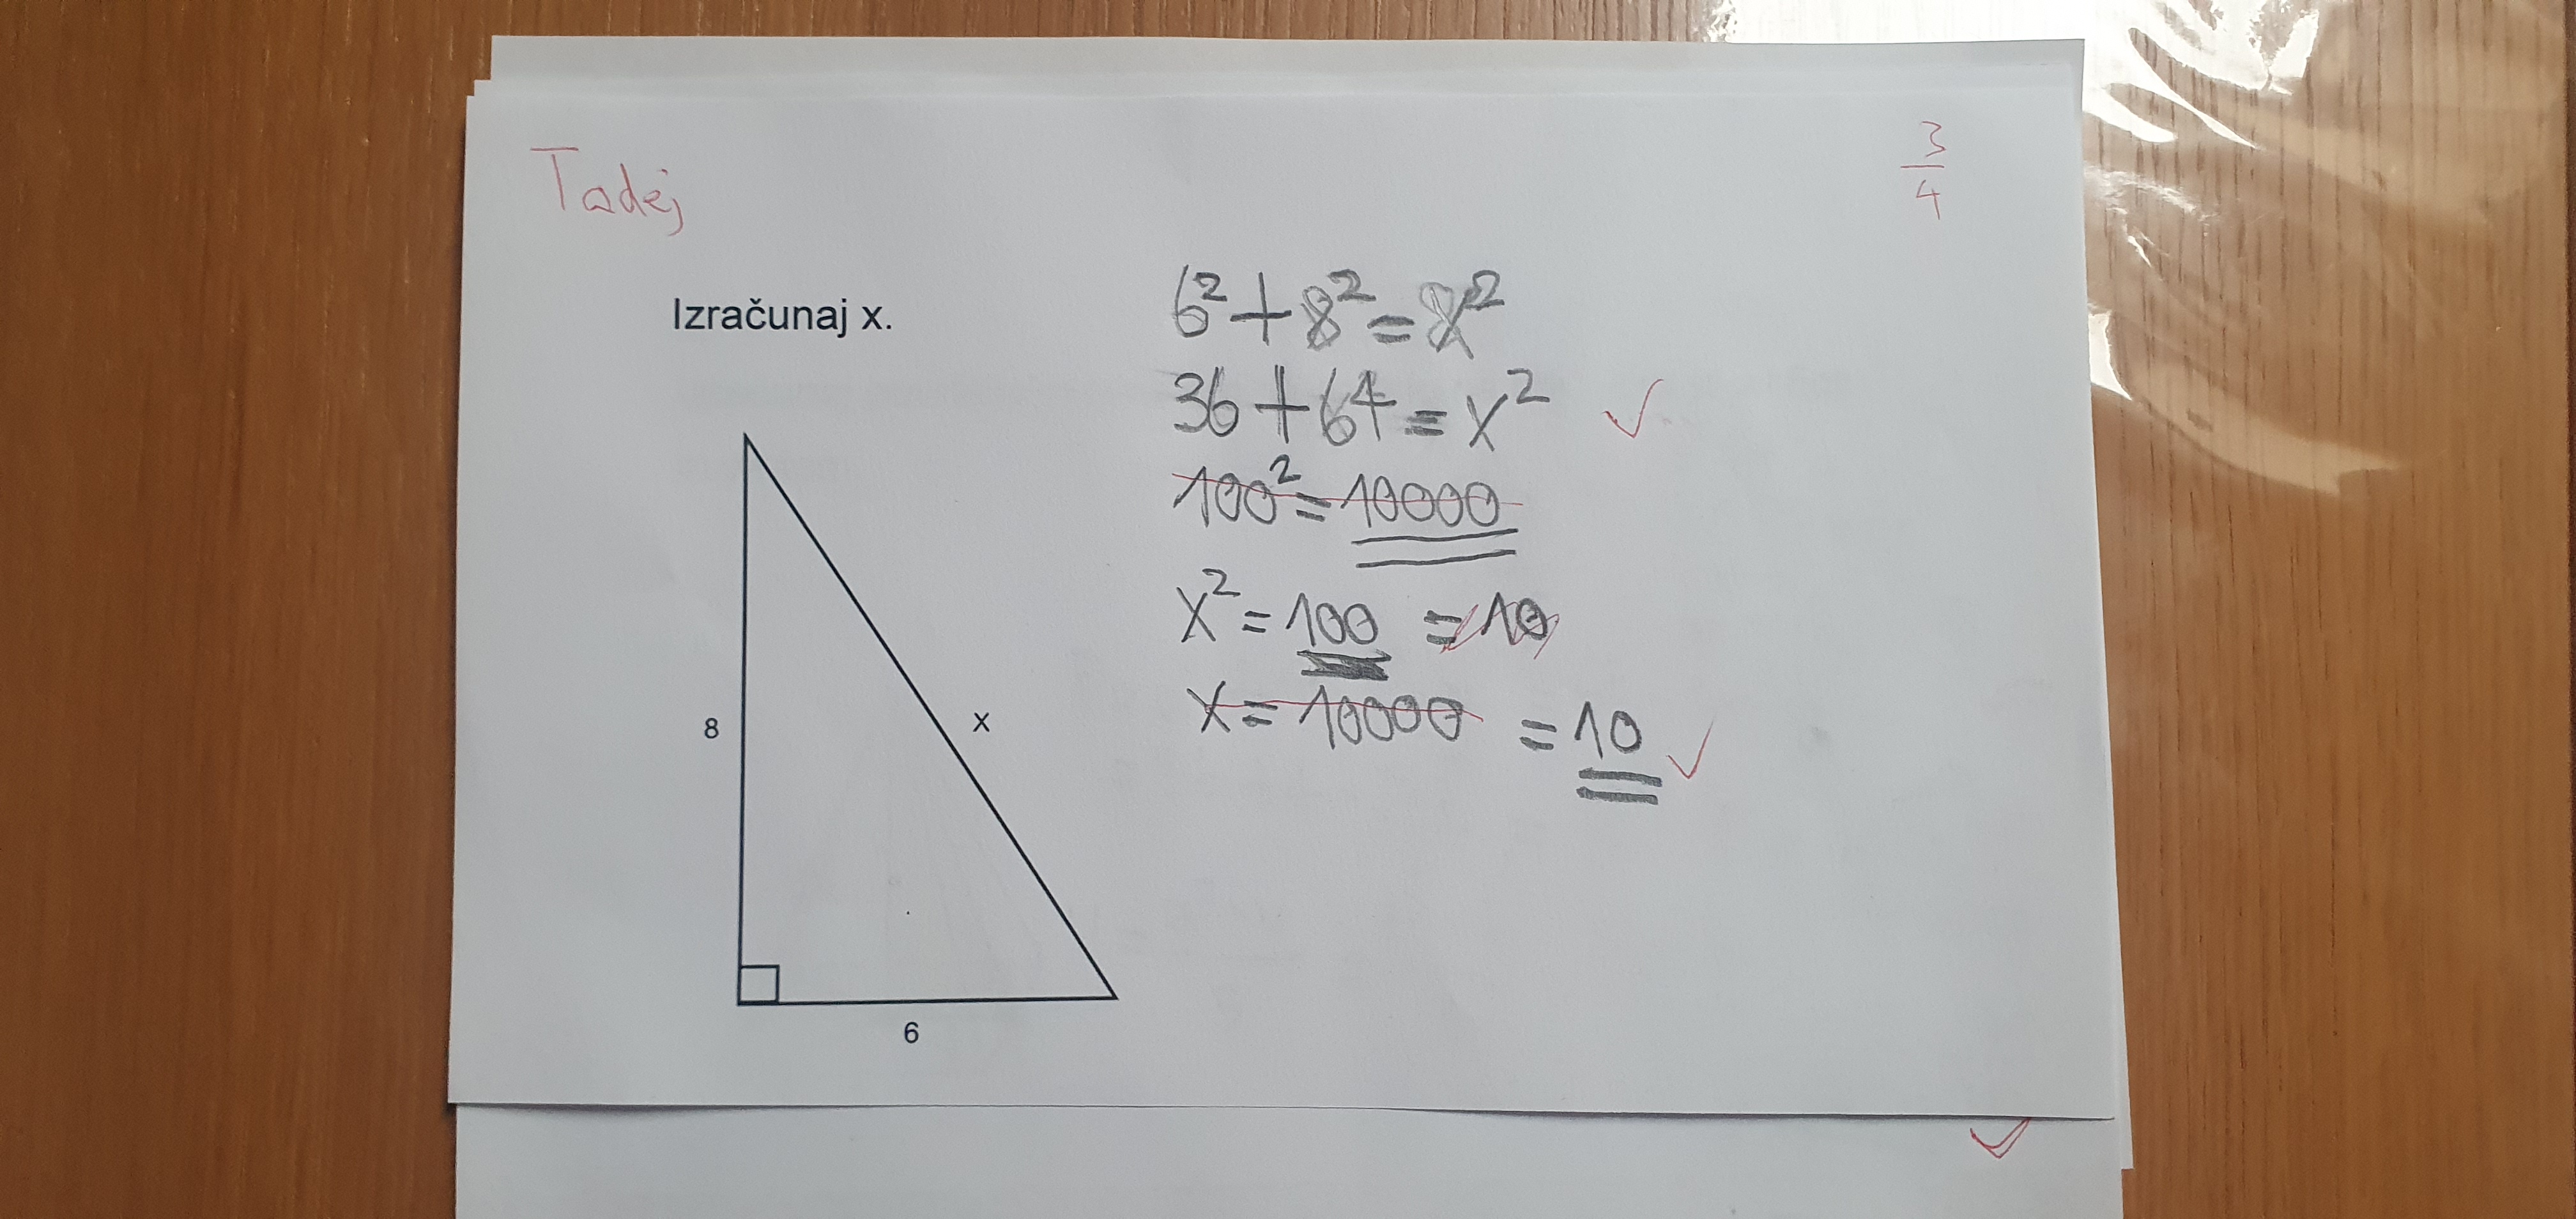 Tadej
3/4
Izračunaj x.
8
x
6
6² + 8² = x²
36 + 64 = x²
100² = 10000
x² = 100 = 10
x = 10000 = 10